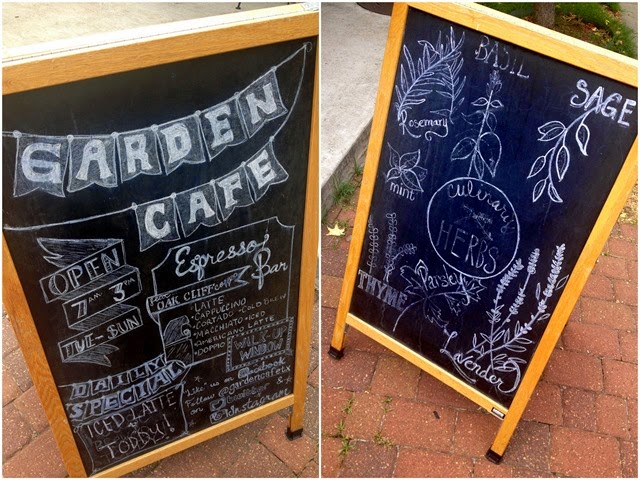 GARDEN
CAFE
OPEN
7AM 3PM
TUE-SUN
Espresso
Bar
OAK CLIFF
LATTE
CAPPUCCINO
CORTADO COLD BREW
MACCHIATO ICED
AMERICANO LATTE
DOPPIO
WALK UP
WINDOW
DAILY
SPECIAL
ICED LATTE
TODDY!
"Like" us on facebook
Follow @gardencafetx
on
& Instagram
BASIL
SAGE
Rosemary
mint
culinary
HERBS
Parsley
THYME
Lavender